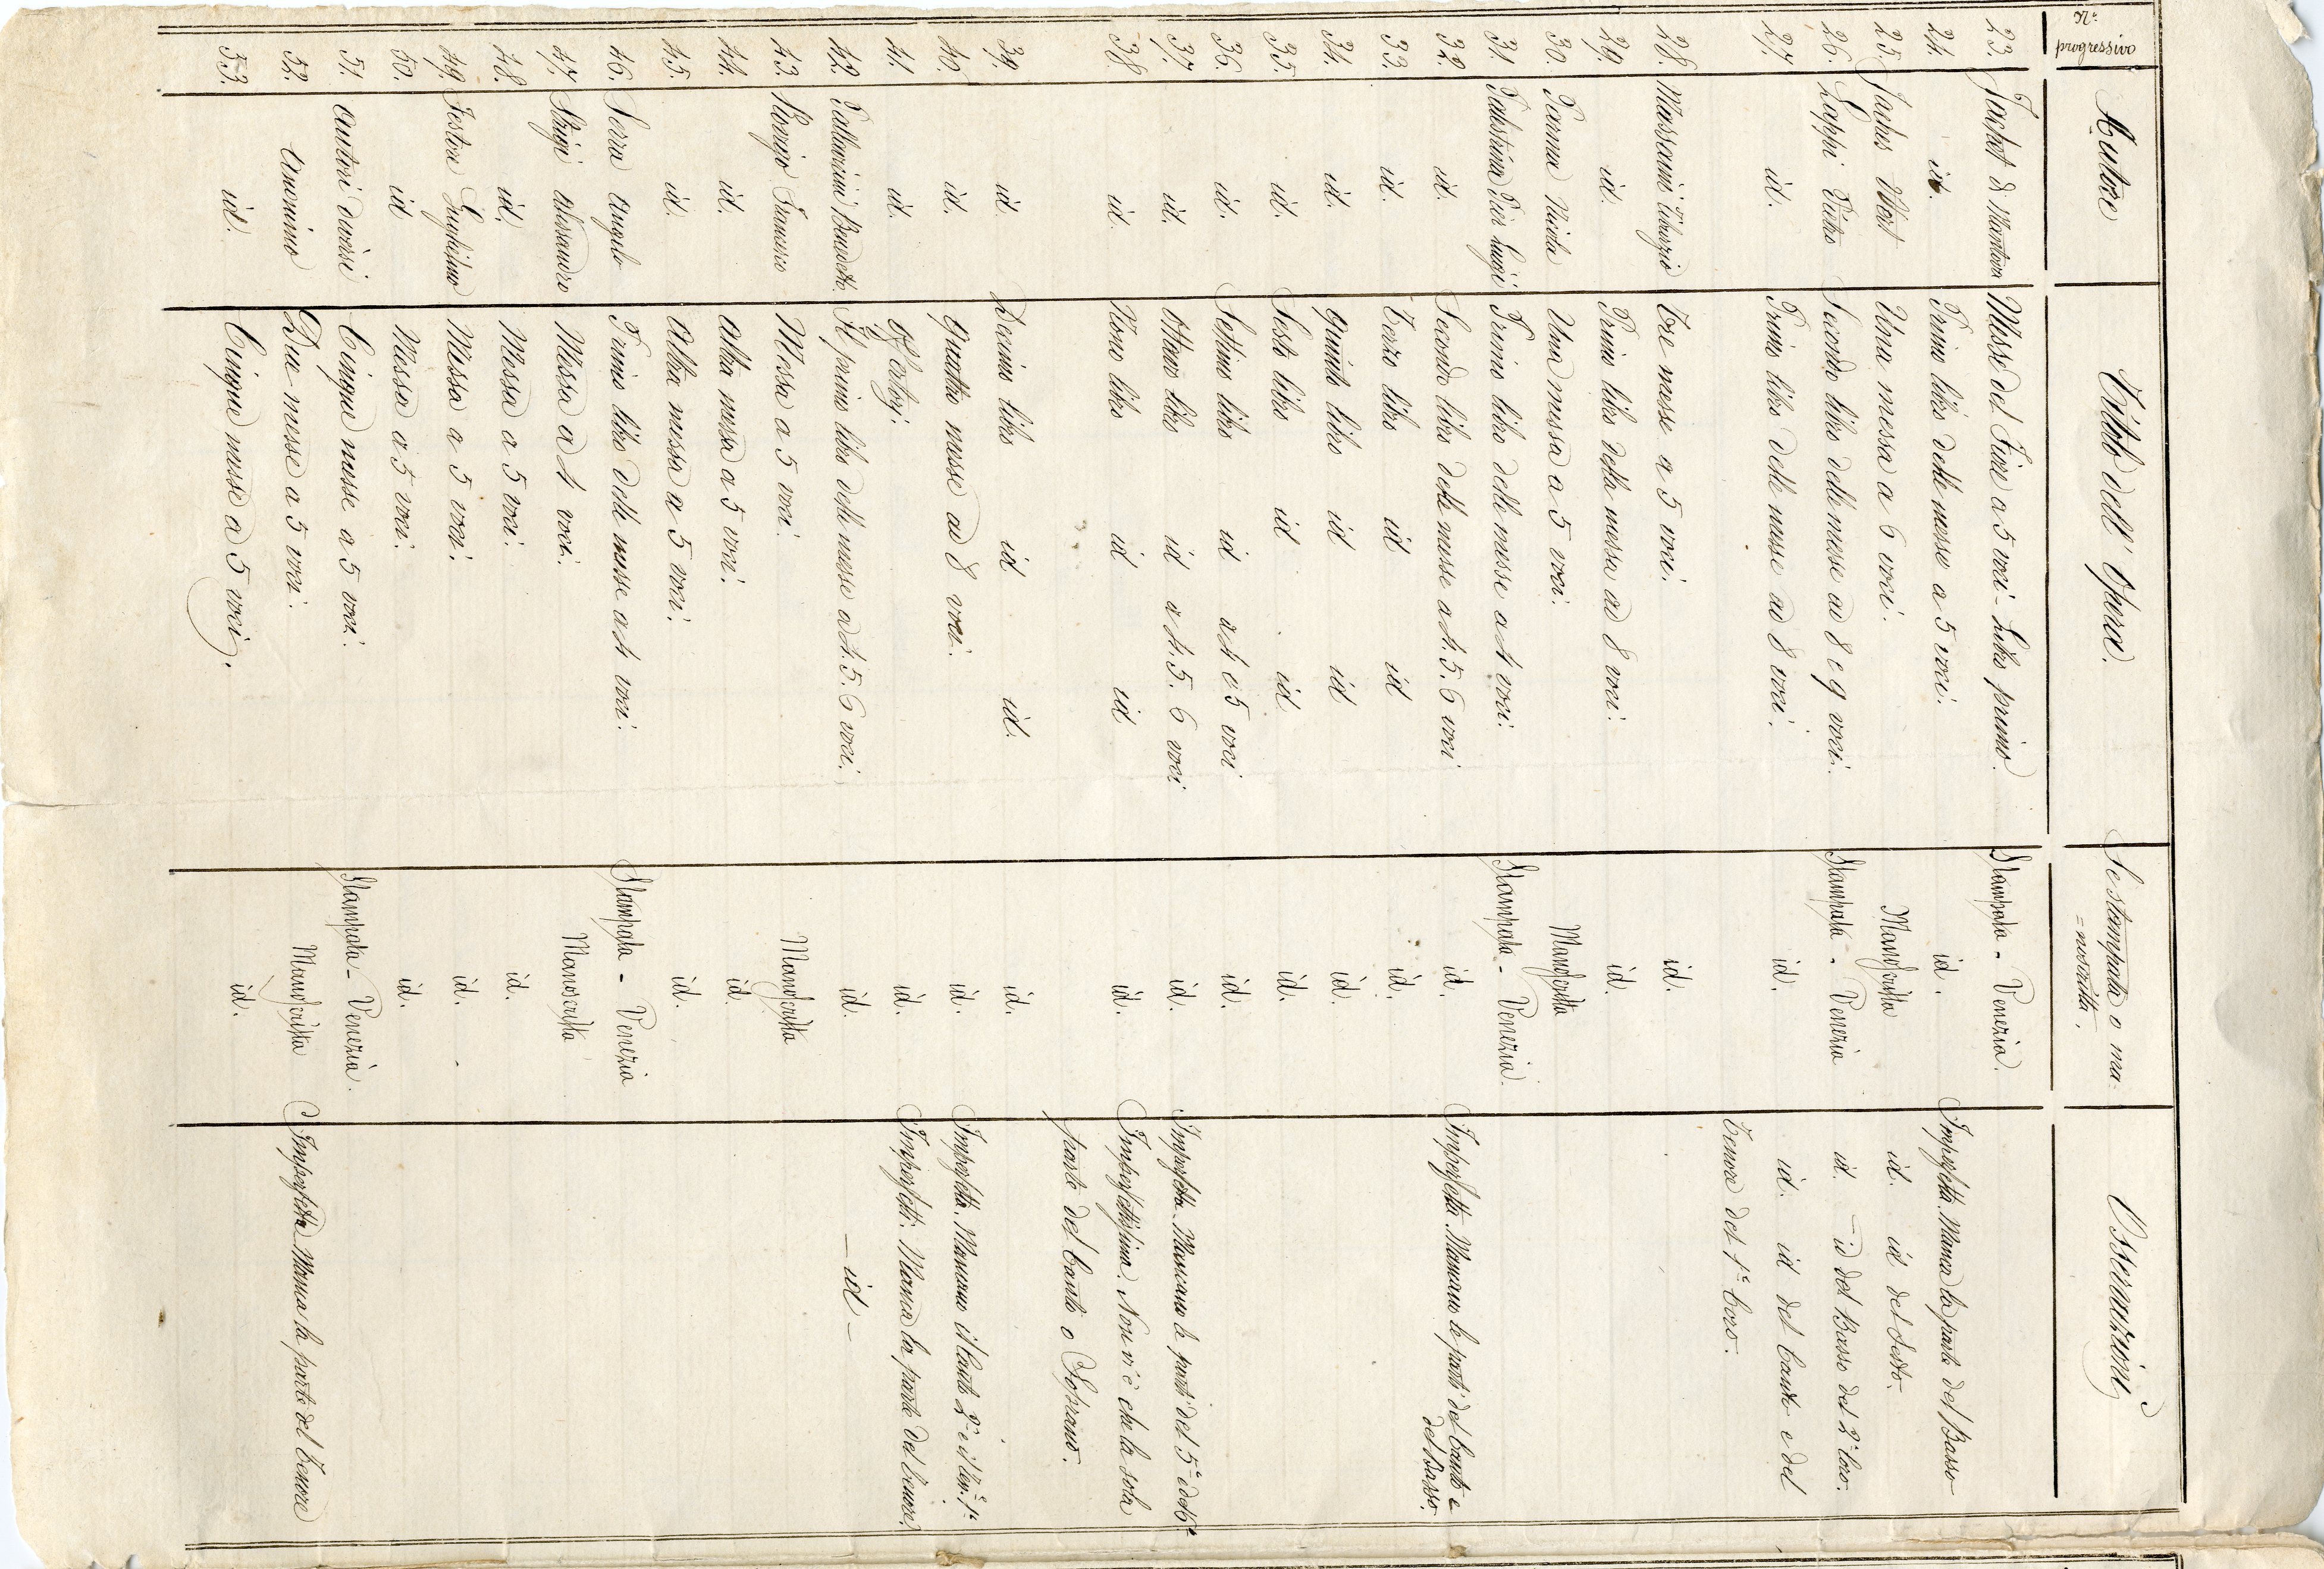 N.° progressivo | Autore | Titolo dell' Opera. | Se stampata o ma=noscritta. | Osservazioni
23. | Jachet di Mantova | Messe del Fiore a 5 voci - Libro primo. | Stampata - Venezia.
24. | id. | Primo libro delle messe a 5 voci. | id. | Imperfetta. Manca la parte del Basso
25. | Jaches Wert | Una messa a 6 voci. | Manoscritta | id. id del Sesto.
26. | Lappi Pietro | Secondo libro delle messe ad 8 e 9 voci. | Stampata - Venezia | id. - id del Basso del 2.° Coro.
27. | id. | Primo libro delle messe ad 8 voci. | id. | id. id del Canto e del
Tenore del 1.° Coro.
28. | Massaini Tiburzio | Tre messe a 5 voci. | id.
29. | id. | Primo libro della messa ad 8 voci. | id.
30. | Parma Nicola | Una messa a 5 voci. | Manoscritta
31. | Palestrina Pier Luigi | Primo libro delle messe a 4 voci. | Stampata - Venezia.
32. | id. | Secondo libro delle messe a 4. 5. 6 voci | id. | Imperfetta. Mancano le parti del Canto e
del Basso.
33. | id. | Terzo libro id id | id.
34. | id. | Quinto libro id id | id.
35. | id. | Sesto libro id id | id.
36. | id. | Settimo libro id a 4 o 5 voci | id.
37. | id. | Ottavo libro id a 4. 5. 6 voci | id. | Imperfetta. Mancano le parti del 5.° e del 6.°
38. | id. | Nono libro id id | id. | Imperfettissima. Non vi è che la sola
parte del Canto o Soprano.
39. | id. | Decimo libro id id. | id.
40. | id. | Quattro messe ad 8 voci. | id. | Imperfetta. Mancano il Canto 2.° e il Ten.e 1.°
41. | id. | Gl' | id. | Imperfetti. Manca la parte del Tenore.
42. | Pallavicini Benedetto. | Il primo libro delle messe a 4. 5. 6 voci. | id. | - id -
43. | Rovigo Francesco | Messa a 5 voci. | Manoscritta
44. | id. | Altra messa a 5 voci. | id.
45. | id. | Altra messa a 5 voci. | id.
46. | Serra Angelo | Primo libro delle messe a 4 voci. | Stampata - Venezia
47. | Strigi Alessandro | Messa a 4 voci. | Manoscritta
48. | id. | Messa a 5 voci. | id.
49. | Testore Guglielmo | Messa a 5 voci. | id.
50. | id | Messa a 5 voci. | id.
51. | Autori diversi | Cinque messe a 5 voci. | Stampata - Venezia.
52. | Anonimo | Due messe a 5 voci. | Manoscritta | Imperfetta. Manca la parte del Tenore
53. | id. | Cinque messe a 5 voci. | id.